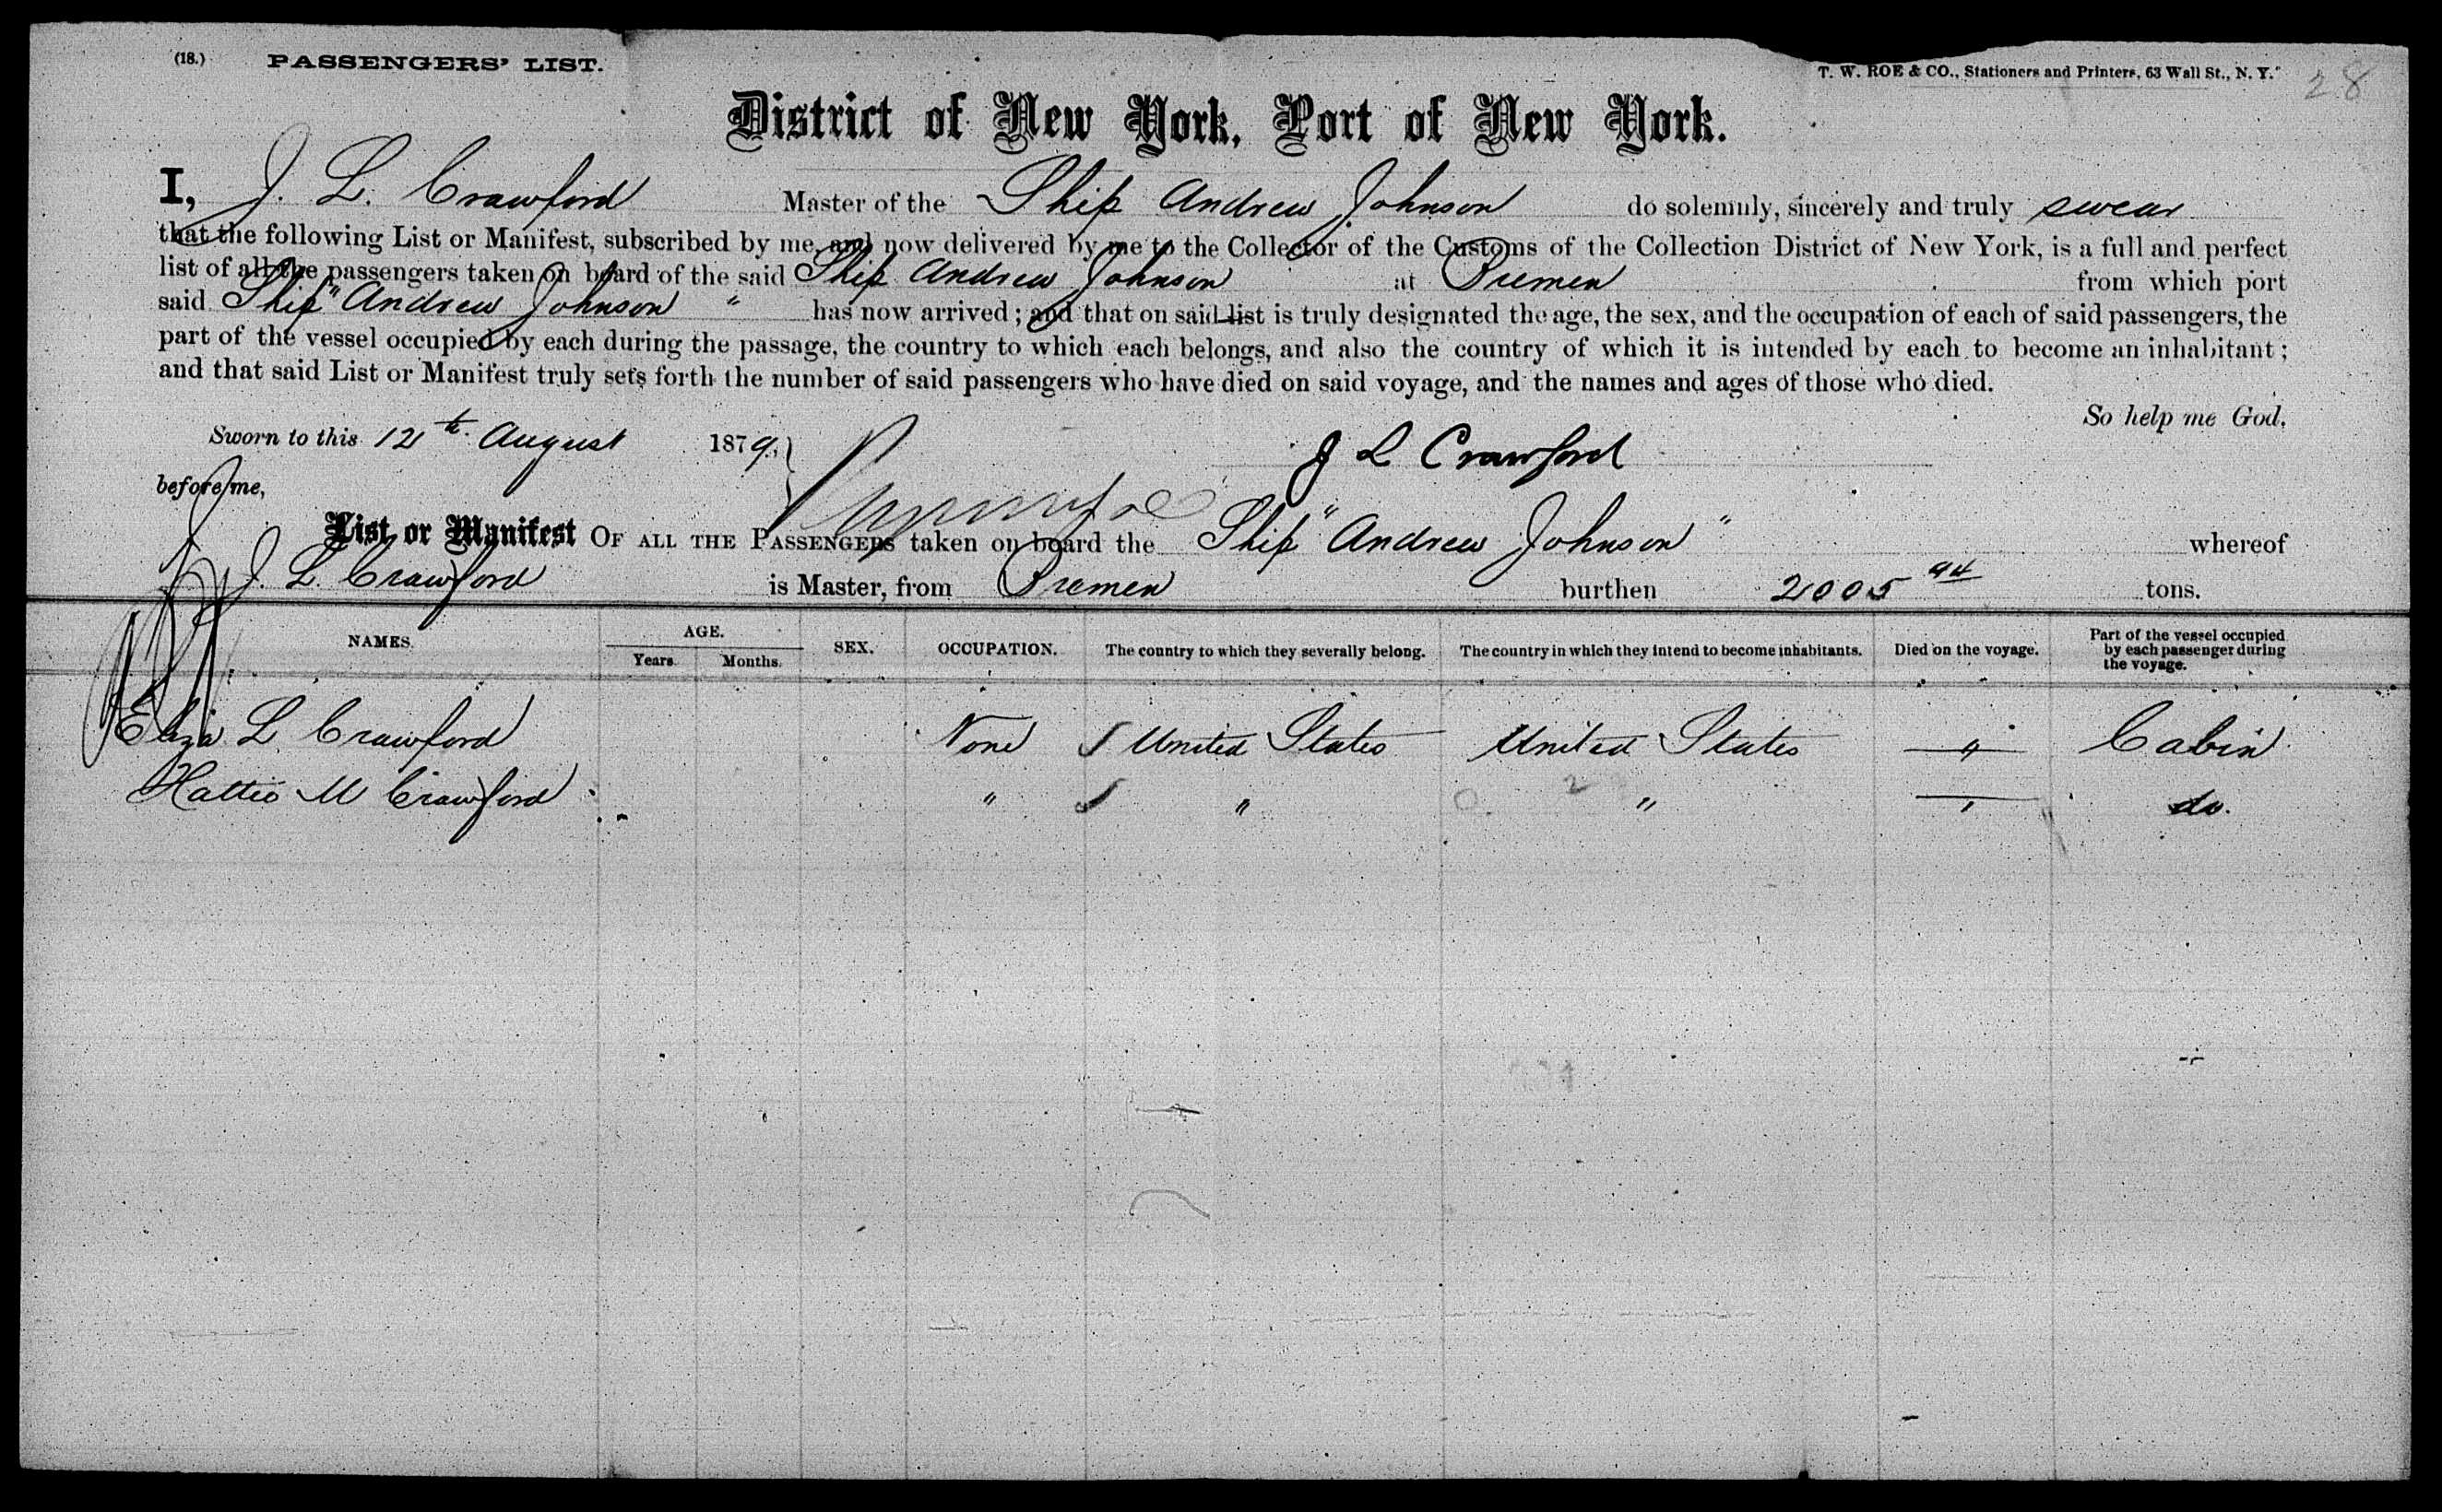 (18.) PASSENGERS' LIST. T. W. ROE & CO., Stationers and Printers, 63 Wall St., N. Y. 28
District of New York, Port of New York.
I, J. L. Crawford Master of the Ship Andrew Johnson do solemnly, sincerely and truly swear
that the following List or Manifest, subscribed by me, and now delivered by me to the Collector of the Customs of the Collection District of New York, is a full and perfect
list of all the passengers taken on board of the said Ship Andrew Johnson at Bremen from which port
said Ship "Andrew Johnson" has now arrived; and that on said list is truly designated the age, the sex, and the occupation of each of said passengers, the
part of the vessel occupied by each during the passage, the country to which each belongs, and also the country of which it is intended by each to become an inhabitant;
and that said List or Manifest truly sets forth the number of said passengers who have died on said voyage, and the names and ages of those who died.
So help me God.
Sworn to this 12th August 1879, J L Crawford
before me,
List or Manifest OF ALL THE PASSENGERS taken on board the Ship "Andrew Johnson" whereof
J. L. Crawford is Master, from Bremen burthen 2005 94 tons.
NAMES. AGE. Years. Months. SEX. OCCUPATION. The country to which they severally belong. The country in which they intend to become inhabitants. Died on the voyage. Part of the vessel occupied by each passenger during the voyage.
Eliza L Crawford None United States United States " Cabin
Hattie M Crawford " " " " do.